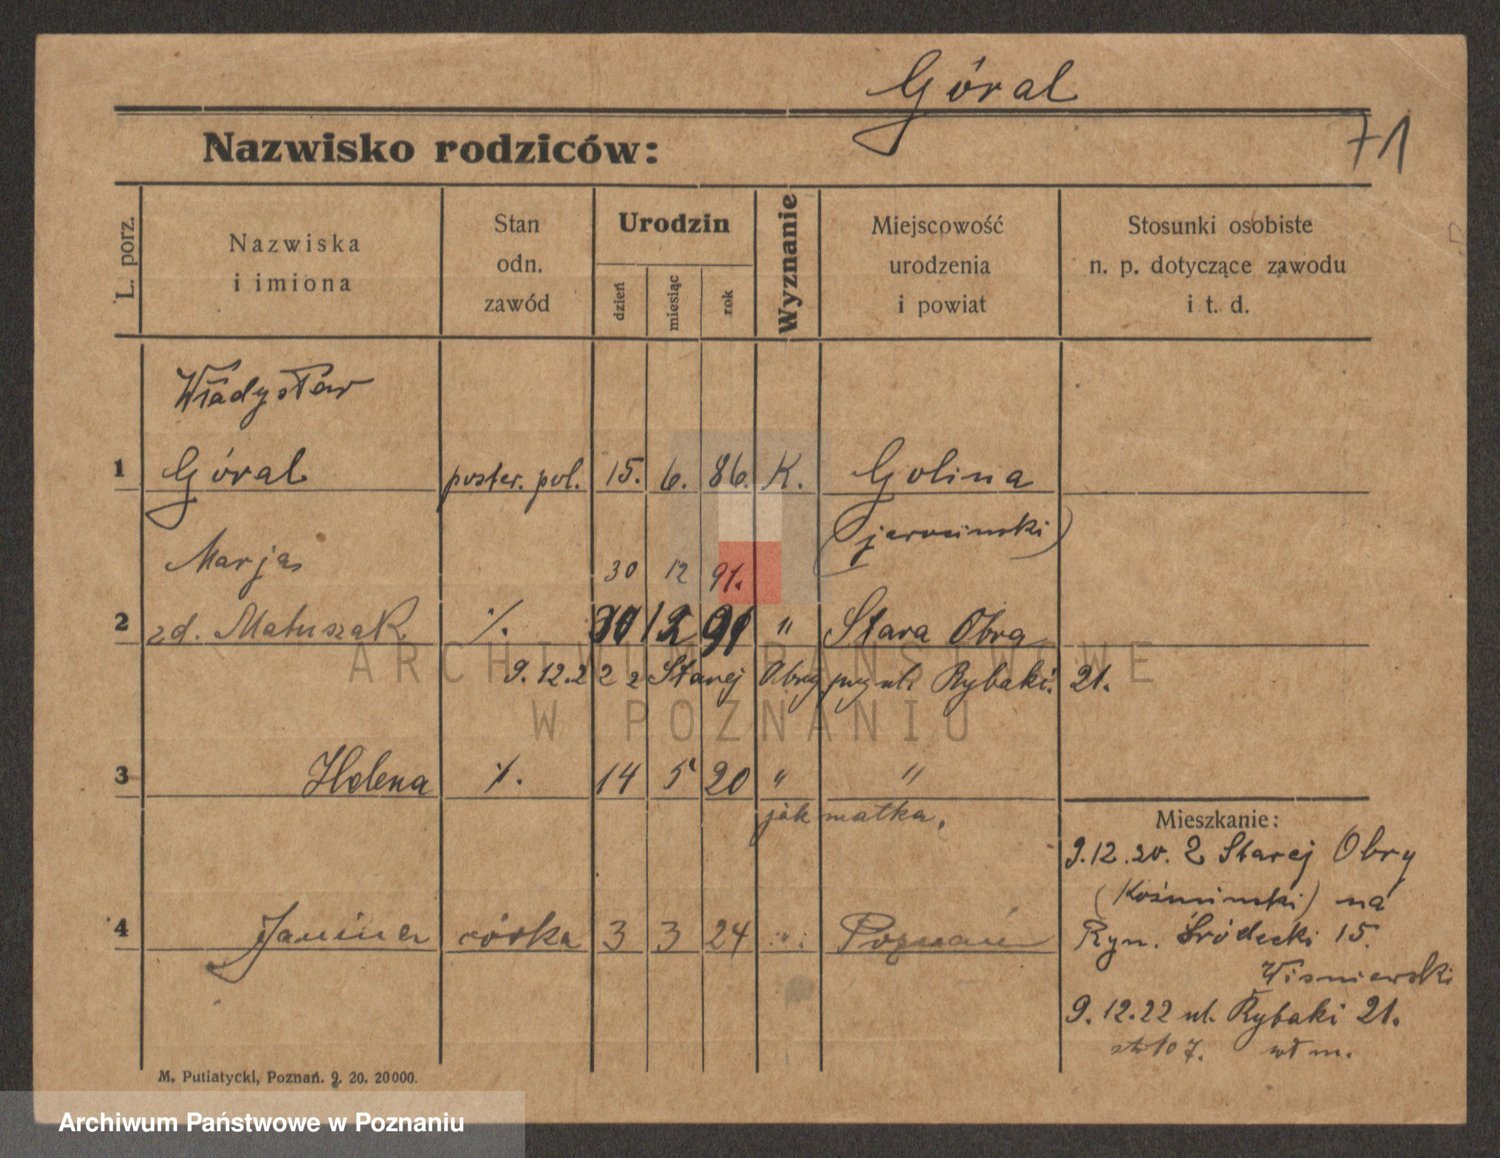 Góral
Nazwisko rodziców:
71
L. porz.
Nazwiska
i imiona
Stan
odn.
zawód
Urodzin
dzień
miesiąc
rok
Wyznanie
Miejscowość
urodzenia
i powiat
Stosunki osobiste
n. p. dotyczące zawodu
i t. d.
Władysław
1 Góral poster. pol. 15. 6. 86. K. Golina
(jarocinski)
Marja
30 12 91.
2 zd. Matuszak ./. 30 12 91 " Stara Obra
9.12.22 z Starej Obry przy ul. Rybaki 21.
3 Helena ./. 14 5 20 " "
jak matka.
Mieszkanie:
9.12.20. Z Starej Obry
(Koźminski) na
4 Janina córka 3 3 24 " Poznań
Ryn. Śródecki 15.
Wisniewski
9.12.22 ul. Rybaki 21.
wł m.
M. Putiatycki, Poznań. 9. 20. 20000.
ARCHIWUM PAŃSTWOWE
W POZNANIU
Archiwum Państwowe w Poznaniu